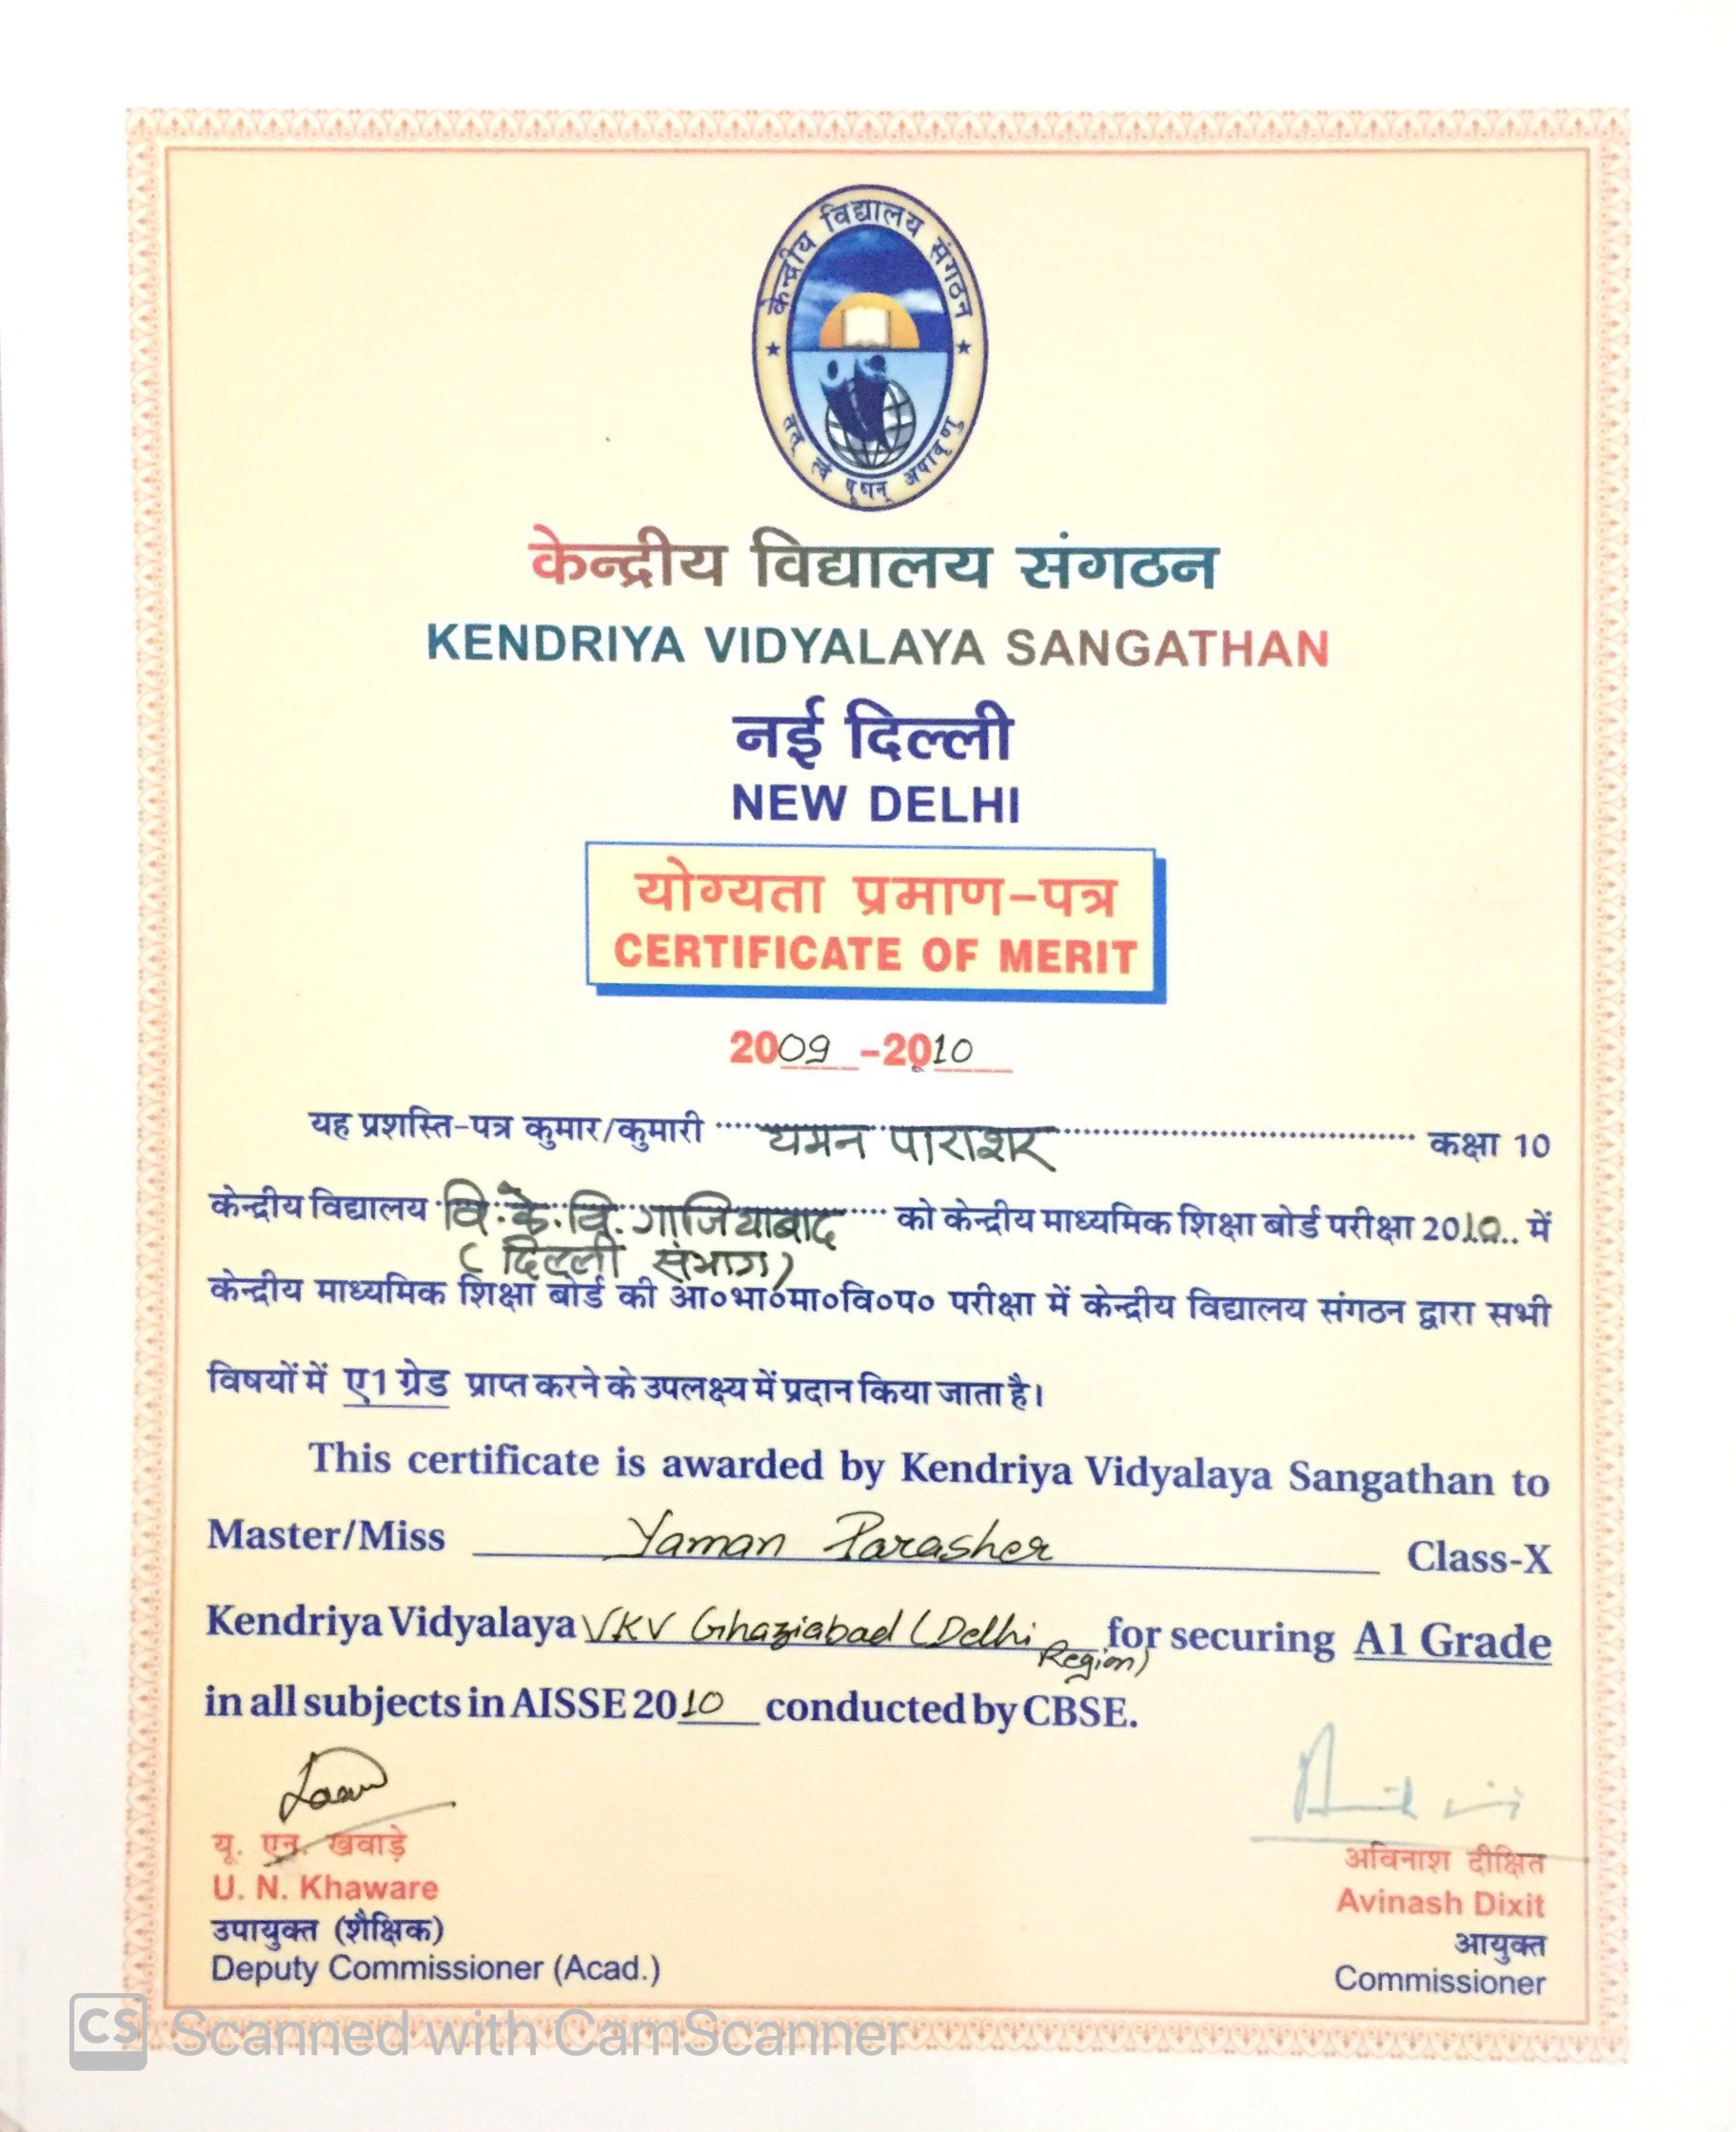 केन्द्रीय विद्यालय संगठन
तत् त्वं पूषन् अपावृणु
केन्द्रीय विद्यालय संगठन
KENDRIYA VIDYALAYA SANGATHAN
नई दिल्ली
NEW DELHI
योग्यता प्रमाण-पत्र
CERTIFICATE OF MERIT
2009 -2010
यह प्रशस्ति-पत्र कुमार/कुमारी यमन पाराशर कक्षा 10
केन्द्रीय विद्यालय वि. के. वि. गाजियाबाद को केन्द्रीय माध्यमिक शिक्षा बोर्ड परीक्षा 2010.. में
(दिल्ली संभाग)
केन्द्रीय माध्यमिक शिक्षा बोर्ड की आ०भा०मा०वि०प० परीक्षा में केन्द्रीय विद्यालय संगठन द्वारा सभी
विषयों में ए1 ग्रेड प्राप्त करने के उपलक्ष्य में प्रदान किया जाता है।
This certificate is awarded by Kendriya Vidyalaya Sangathan to
Master/Miss Yaman Parasher Class-X
Kendriya Vidyalaya VKV Ghaziabad (Delhi Region) for securing A1 Grade
in all subjects in AISSE 2010 conducted by CBSE.
यू. एन. खवाड़े
U. N. Khaware
उपायुक्त (शैक्षिक)
Deputy Commissioner (Acad.)
अविनाश दीक्षित
Avinash Dixit
आयुक्त
Commissioner
CS Scanned with CamScanner